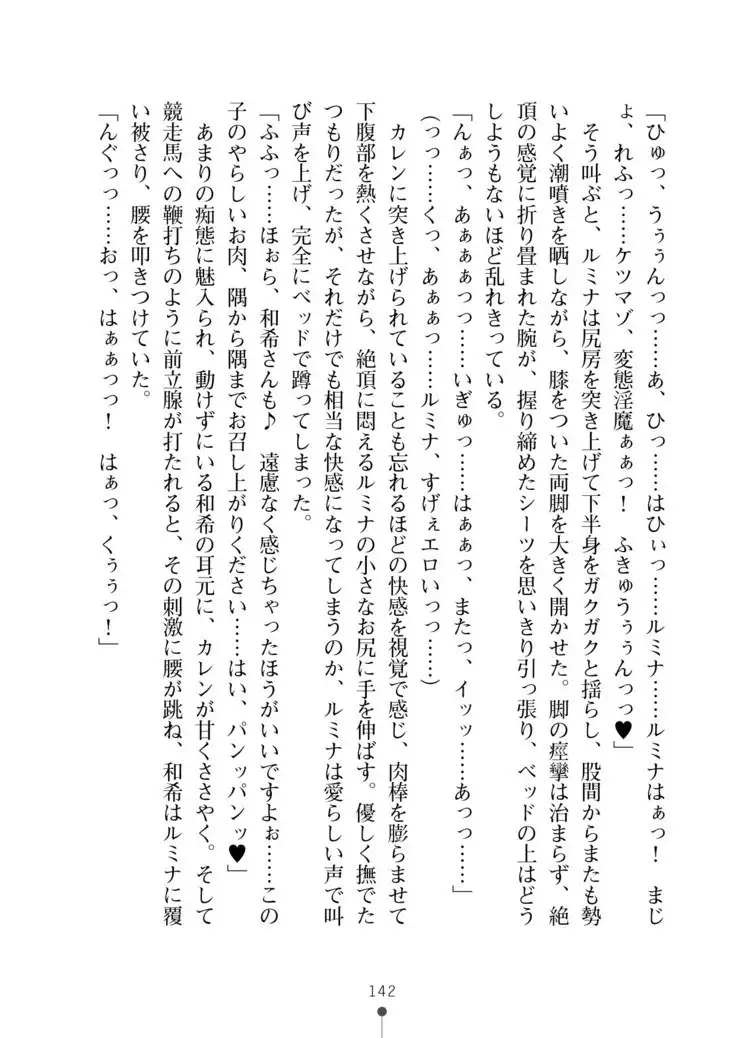 「ひゅっ、うぅぅんっっ……あ、ひっ……はひぃっ……ルミナ……ルミナはぁっ！　まじ
ょ、れふっ……ケツマゾ、変態淫魔ぁぁっ！　ふきゅうぅぅんっっ♥」
　そう叫ぶと、ルミナは尻房を突き上げて下半身をガクガクと揺らし、股間からまたも勢
いよく潮噴きを晒しながら、膝をついた両脚を大きく開かせた。脚の痙攣は治まらず、絶
頂の感覚に折り畳まれた腕が、握り締めたシーツを思いきり引っ張り、ベッドの上はどう
しようもないほど乱れきっている。
「んぁっ、あぁぁぁっっ……いぎゅっ……はぁぁっ、またっ、イッッ……あっっ……」
（っっ……くっ、あぁぁっ……ルミナ、すげぇエロいっっ……）
　カレンに突き上げられていることも忘れるほどの快感を視覚で感じ、肉棒を膨らませて
下腹部を熱くさせながら、絶頂に悶えるルミナの小さなお尻に手を伸ばす。優しく撫でた
つもりだったが、それだけでも相当な快感になってしまうのか、ルミナは愛らしい声で叫
び声を上げ、完全にベッドで蹲ってしまった。
「ふふっ……ほぉら、和希さんも♪　遠慮なく感じちゃったほうがいいですよぉ……この
子のやらしいお肉、隅から隅までお召し上がりください……はい、パンッパンッ♥」
　あまりの痴態に魅入られ、動けずにいる和希の耳元に、カレンが甘くささやく。そして
競走馬への鞭打ちのように前立腺が打たれると、その刺激に腰が跳ね、和希はルミナに覆
い被さり、腰を叩きつけていた。
「んぐっっ……おっ、はぁぁっっ！　はぁっ、くぅぅっ！」
142